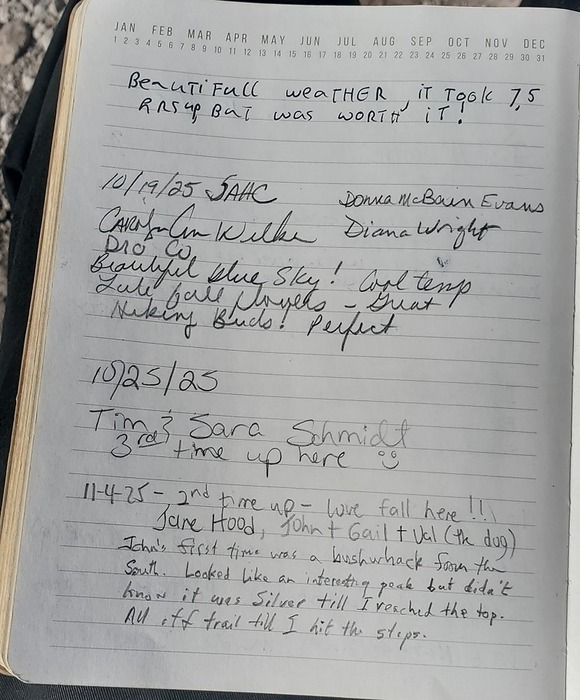 JAN FEB MAR APR MAY JUN JUL AUG SEP OCT NOV DEC
1 2 3 4 5 6 7 8 9 10 11 12 13 14 15 16 17 18 19 20 21 22 23 24 25 26 27 28 29 30 31
BEAUTIFULL WEATHER, iT TOOK 7,5
HRS up BUT was WORTH iT!
10/19/25 SAHC
Donna McBain Evans
Ann Wilke
Diana Wright
Beautiful blue sky! Cool temp
Late fall flowers - Great
Hiking Buds! Perfect
10/25/25
Tim & Sara Schmidt
3rd time up here
11-4-25 - 2nd time up - love fall here!!!
Jane Hood, John + Gail + Val (the dog)
John's first time was a bushwhack from the
South. Looked like an interesting peak but didn't
know it was Silver till I reached the top.
All off trail till I hit the steps.